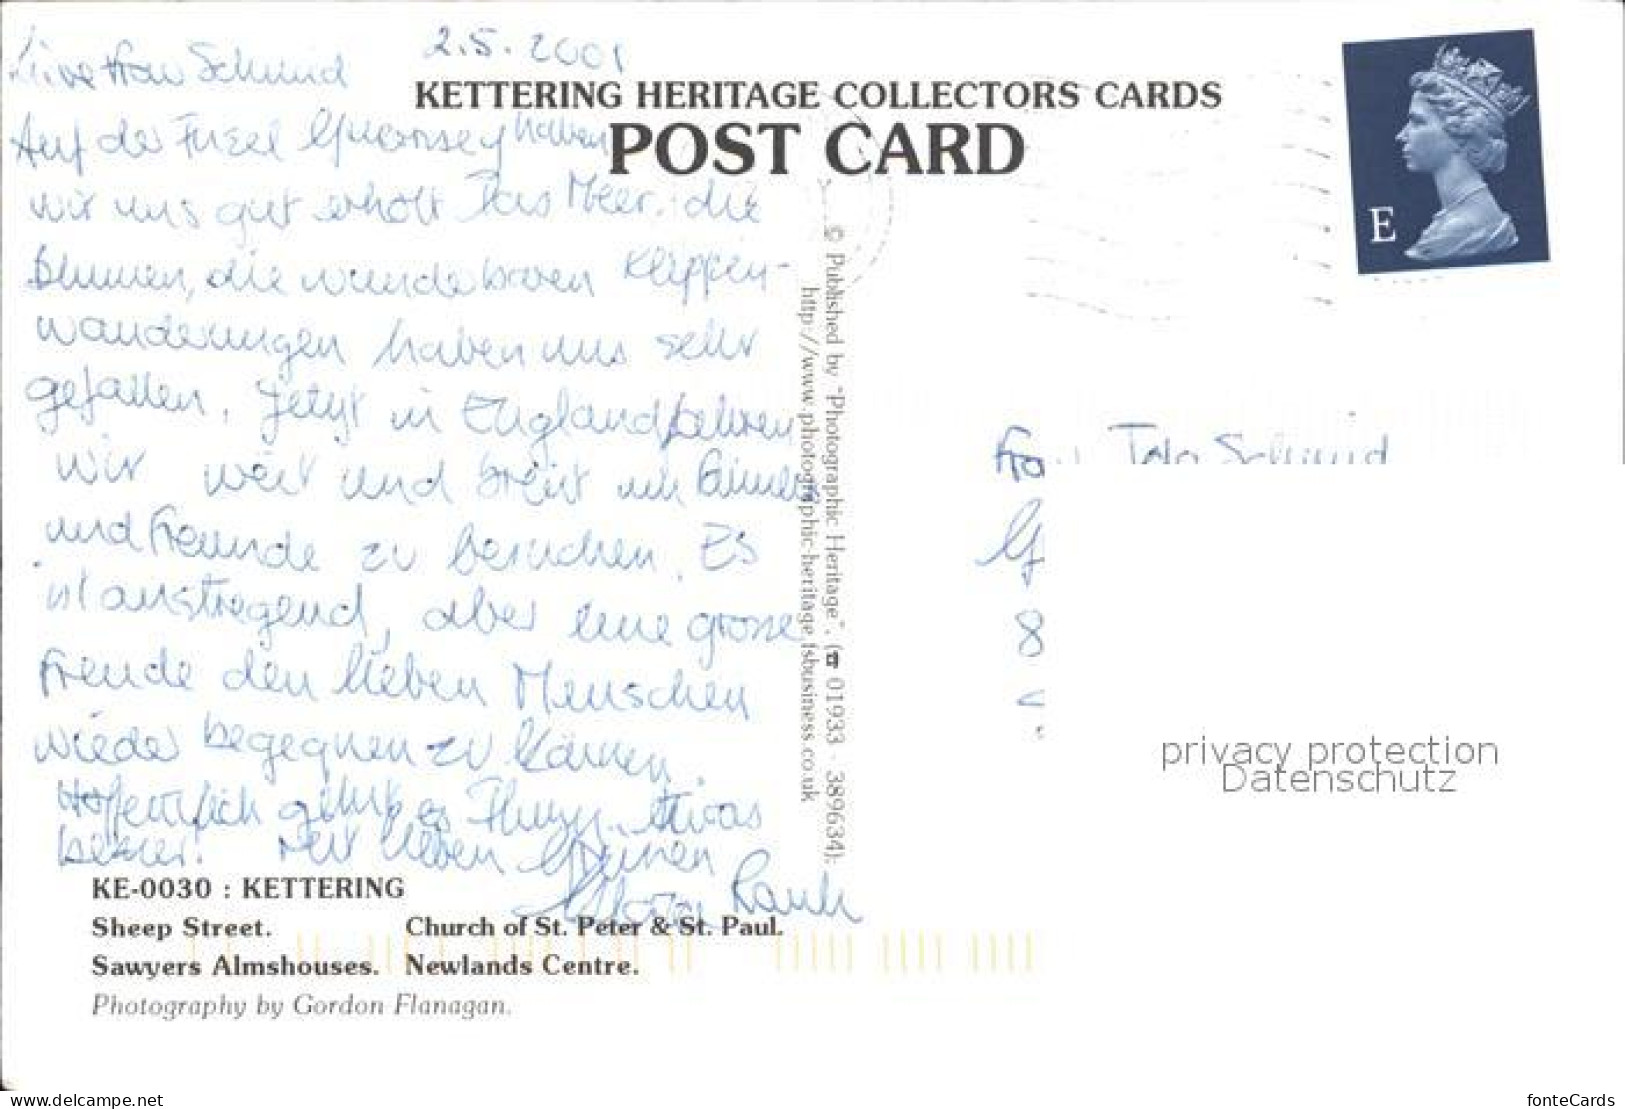 2.5.2001
Liebe Frau Schmid
Auf der Insel Guernsey haben
wir uns gut erholt Das Meer, die
Blumen, die wunderbaren Klippen-
wanderungen haben uns sehr
gefallen. Jetzt in England fahren
wir weit und breit um
und Freunde zu besuchen. Es
ist anstregend, aber eine grosse
Freude den lieben Menschen
wieder begegnen zu können.
Hoffentlich geht es Ihnen etwas
besser. Mit lieben Grüssen
Rauh
KETTERING HERITAGE COLLECTORS CARDS
POST CARD
E
© Published by "Photographic Heritage". (☎ 01933 - 389634).
http://www.photographic-heritage.fsbusiness.co.uk
Schmid
G
8
privacy protection
Datenschutz
KE-0030 : KETTERING
Sheep Street. Church of St. Peter & St. Paul.
Sawyers Almshouses. Newlands Centre.
Photography by Gordon Flanagan.
www.delcampe.net
fonteCards